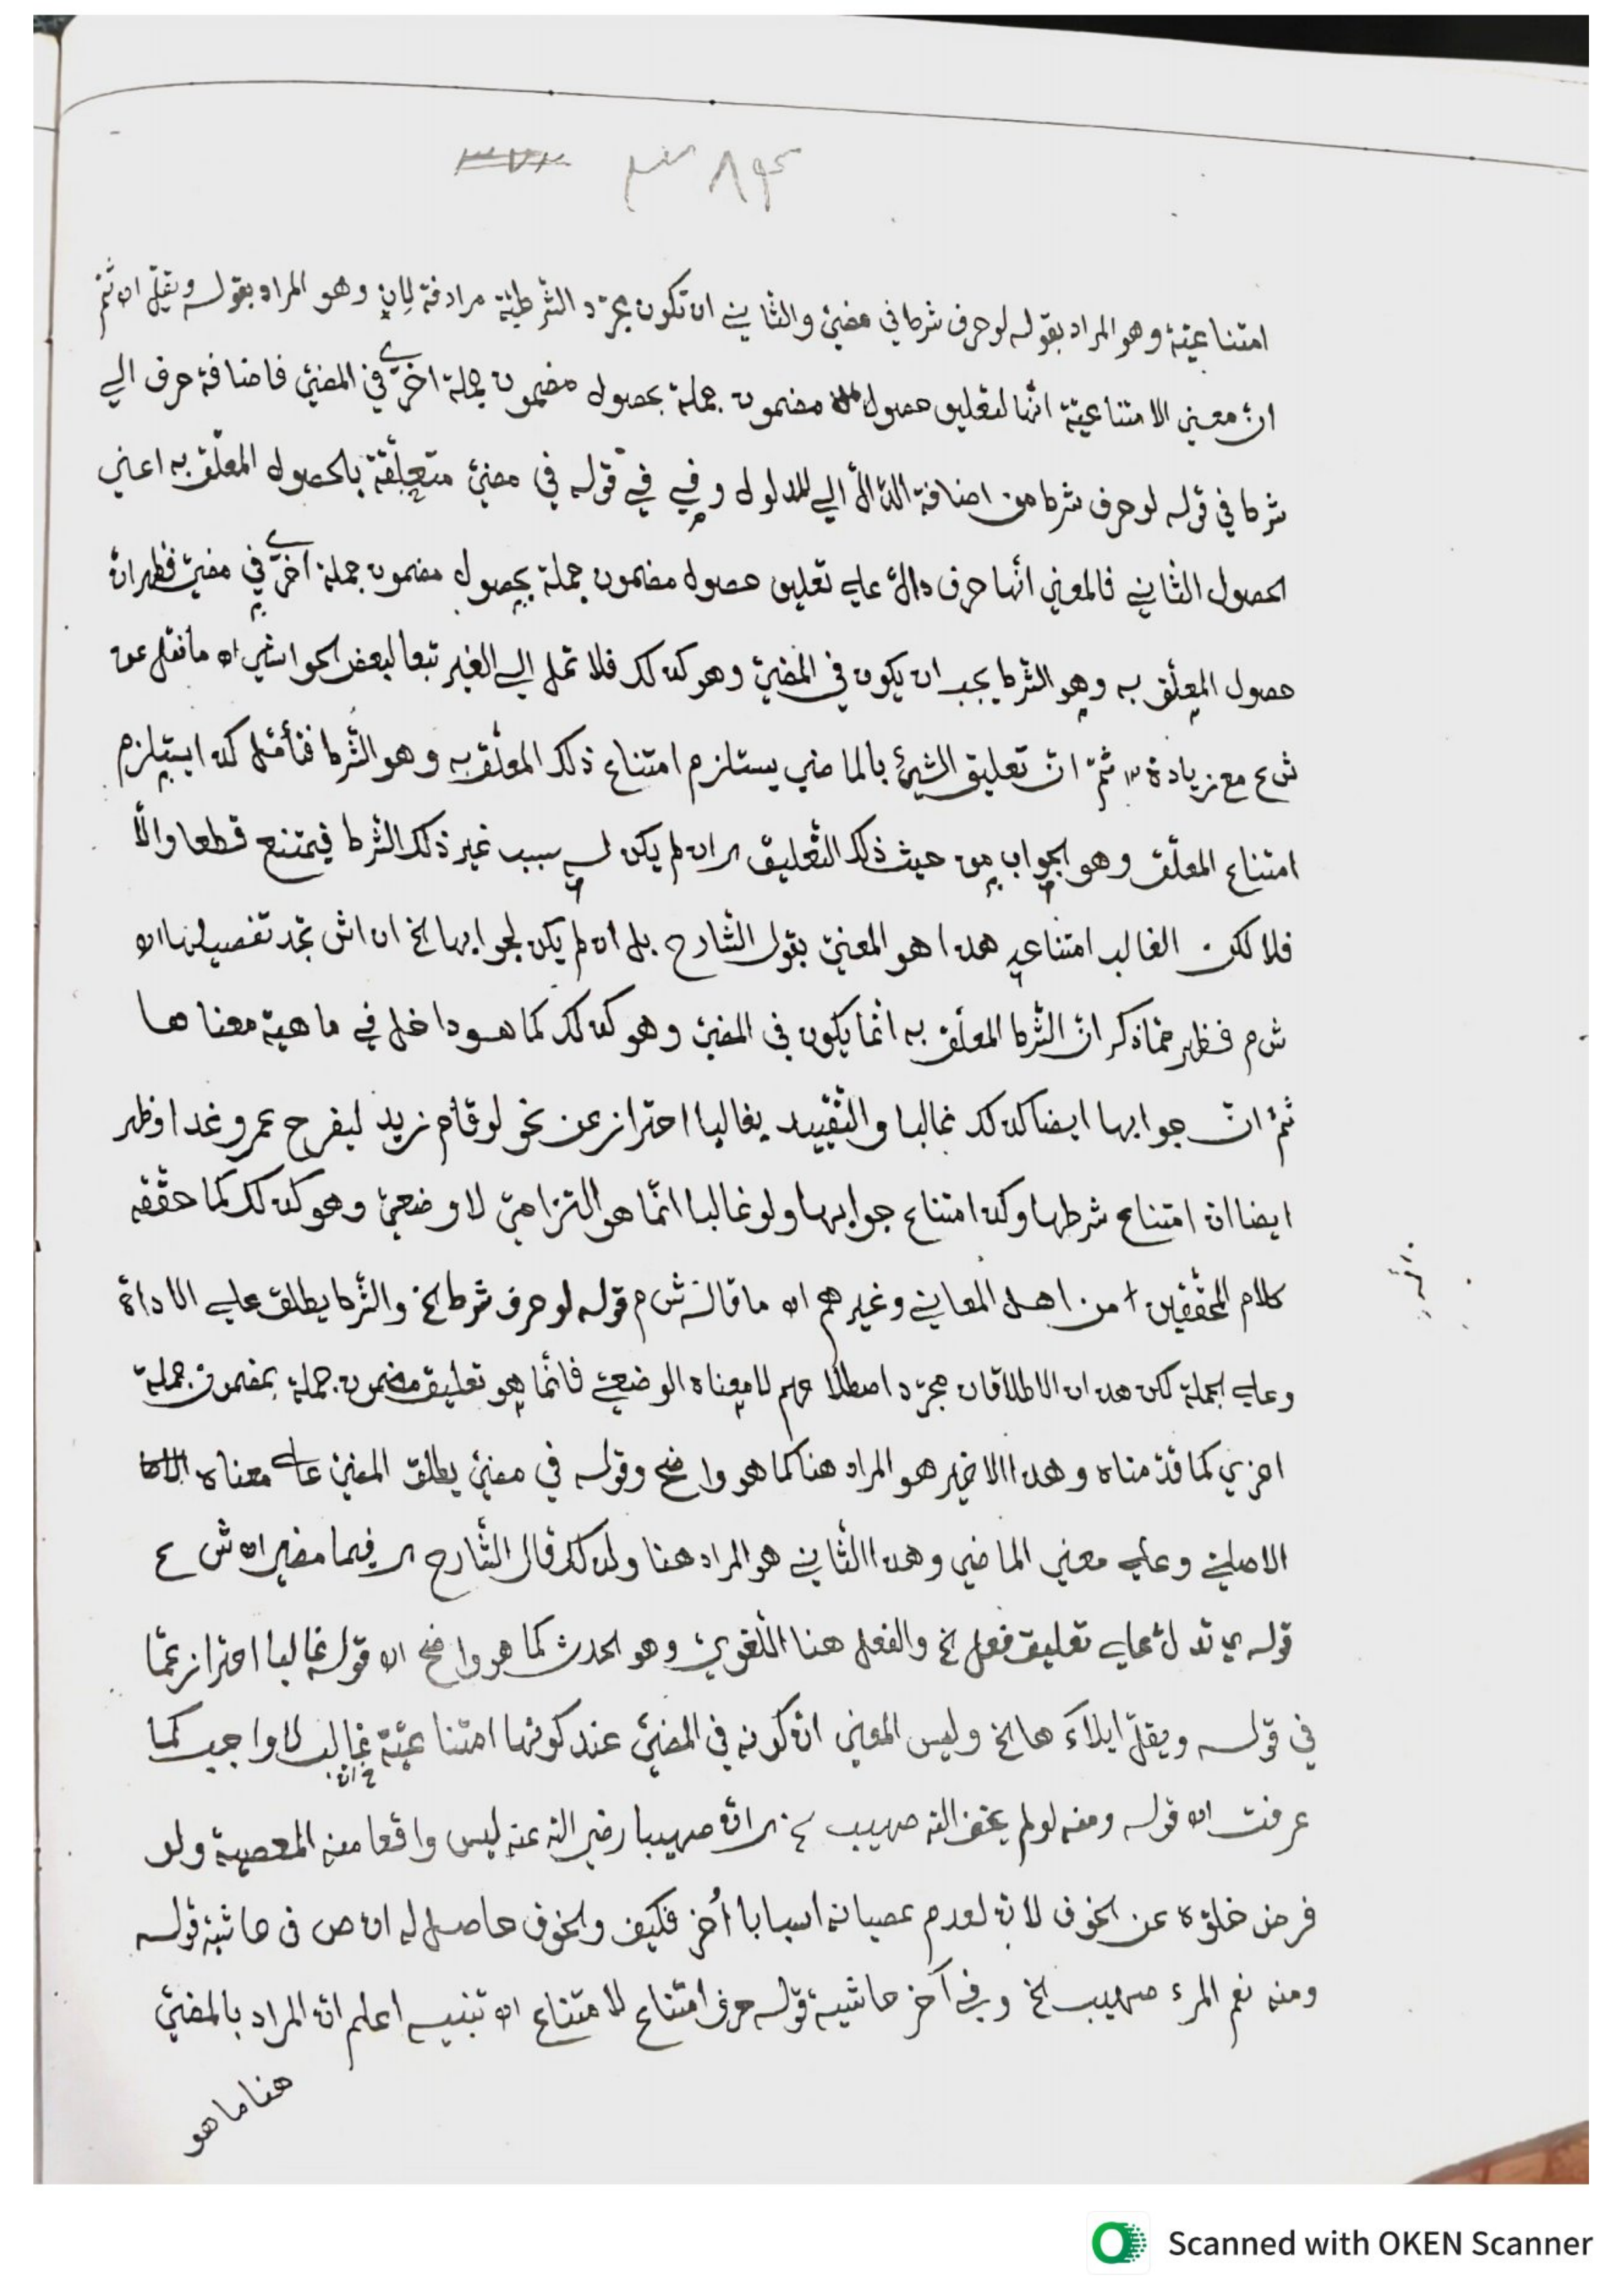 امتناعيّة وهو المراد بقوله لو حرف شرط في مضيّ والثاني ان تكون مجرّد الشرطيّة مرادفة لِإن وهو المراد بقوله ويقلّ اه ثمّ
انّ معنى الامتناعيّة انّها لتعليق حصول مضمون جملة بحصول مضمون جملة اخرى في المضيّ فاضافة حرف الي
شرط في قوله لو حرف شرط من اضافة الدّالّ الي المدلول وفي في قوله في مضيّ متعلّقة بالحصول المعلّق به اعني
الحصول الثاني فالمعني انّها حرف دالّ علي تعليق حصول مضمون جملة بحصول مضمون جملة اخرى في مضيّ فظهر انّ
حصول المعلّق به وهو الشرط يجب ان يكون في المضيّ وهو كذلك فلا تمل الي الغير تبعا لبعض الحواشي اه ما نقل عن
ش ع مع زيادة ثمّ انّ تعليق الشيئ بالماضي يستلزم امتناع ذلك المعلّق به وهو الشرط فتأمّل كذا يستلزم
امتناع المعلّق وهو الجواب من حيث ذلك التّعليق ان لم يكن له سبب غير ذلك الشرط فيمتنع قطعا والّا
فلا لكن الغالب امتناعه هذا هو المعنيّ بقول الشّارح بل ان لم يكن لجوابها الخ ان اش تجد تفصيلها اه
ش م فظهر ممّا ذكر انّ الشّرط المعلّق به انّما يكون في المضيّ وهو كذلك كما هو داخل في ماهية معناها
ثمّ انّ جوابها ايضا كذلك غالبا والتّقييد بغالبا احتراز عن نحو لو قام زيد ليفرح عمرو غدا وظهر
ايضا انّ امتناع شرطها وكذا امتناع جوابها ولو غالبا انّما هو التزاميّ لا وضعيّ وهو كذلك كما حقّقه
كلام المحقّقين من اهل المعاني وغيرهم اه ما قاله ش م قوله لو حرف شرط الخ والشّرط يطلق علي الاداة
وعلي الجملة لكن هذان الاطلاقان مجرّد اصطلاحهم لا معناه الوضعيّ فانّما هو تعليق مضمون جملة بمضمون جملة
اخري كما قدّمناه وهذا الاخير هو المراد هنا كما هو واضح وقوله في مضيّ يطلق المضيّ علي معناه
الاصليّ وعلي معني الماضي وهذا الثّاني هو المراد هنا ولذلك قال الشّارح فيما مضي اه ش ع
قوله تدلّ علي تعليق فعل الخ والفعل هنا اللّغويّ وهو الحدث كما هو واضح اه قوله غالبا احتراز عمّا
في قوله ويقلّ ايلاءها الخ وليس المعني انّ كونه في المضيّ عند كونها امتناعيّة غالب لا واجب كما
عرفت اه قوله ومنه لو لم يخف الله صهيب الخ انّ صهيبا رضي الله عنه ليس واقعا منه المعصية ولو
فرض خلوّه عن الخوف لانّ لعدم عصيانه اسبابا أُخر فكيف والخوف حاصل له اه ص في حاشية قوله
ومنه نعم المرء صهيب الخ وفي آخر حاشية قوله حرف امتناع لامتناع اه تنبيه اعلم انّ المراد بالمضيّ
هنا ما هو
Scanned with OKEN Scanner